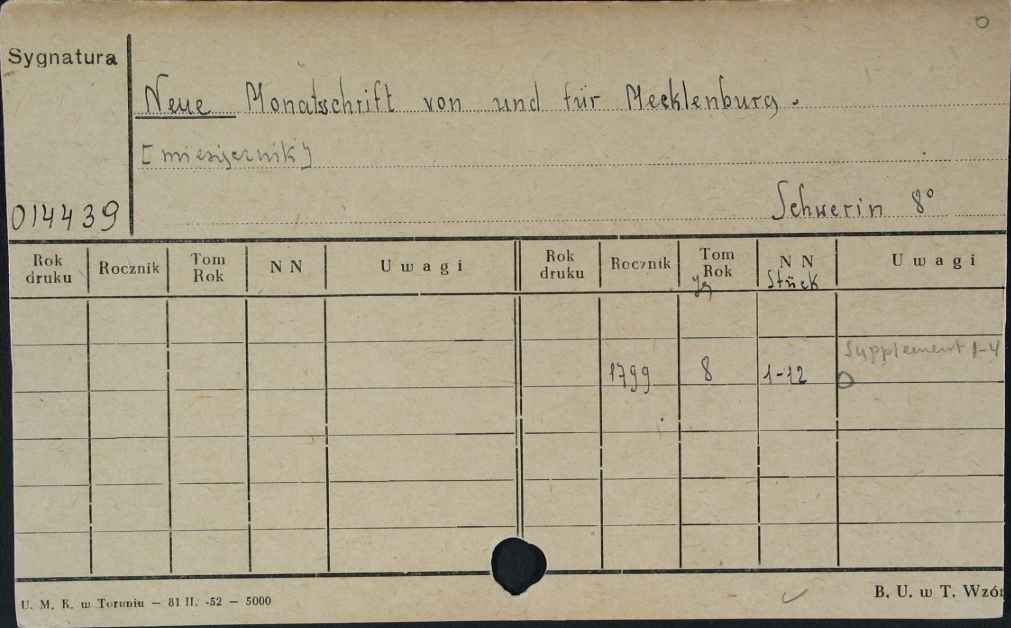 Sygnatura
Neue Monatsschrift von und für Mecklenburg.
[miesięcznik]
014439
Schwerin 8°
Rok druku Rocznik Tom Rok NN Uwagi Rok druku Rocznik Tom Rok NN Uwagi
Jg Stück
Supplement 1-4
1799 8 1-12
U. M. K. w Toruniu — 81 II. -52 — 5000
B. U. w T. Wzór